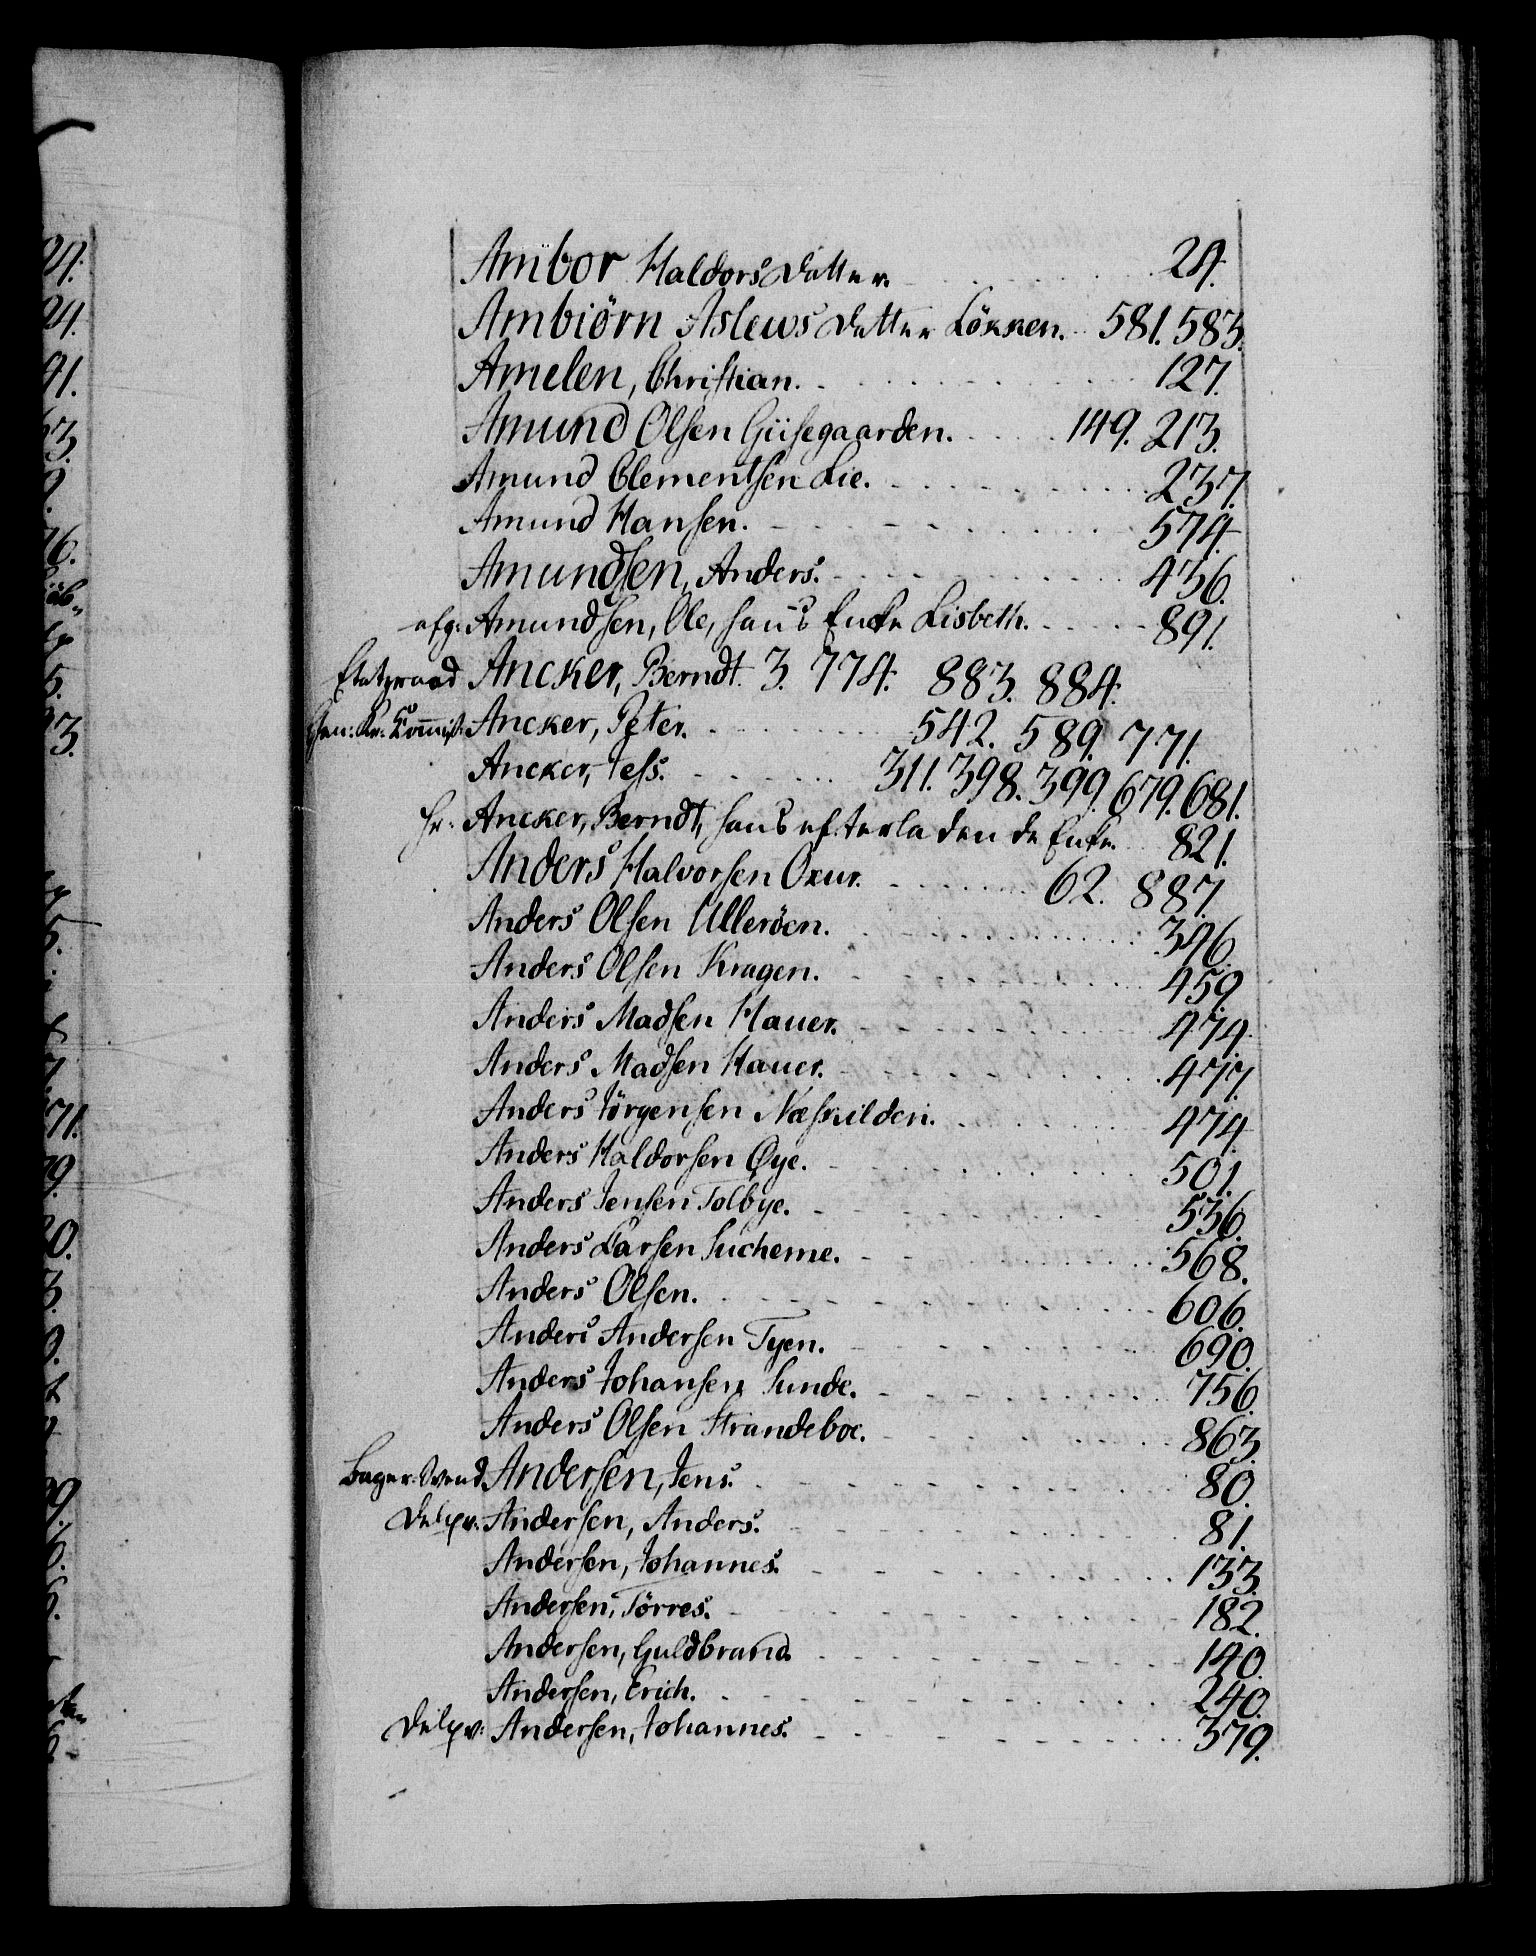 Ambor Haldorsdatter. 24.
Ambiörn Aslewsdatter Lökken. 581. 583.
Amelen, Christian. 127.
Amund Olsen Giisegaarden. 149. 213.
Amund Clementsen Lie. 237.
Amund Hansen. 574.
Amundsen, Anders. 436.
afg: Amundsen, Ole, hans Enke Lisbeth. 891.
Etatzraad Ancker, Berndt. 3. 774. 883. 884.
Gen: Kr: Commiss: Ancker, Peter. 542. 589. 771.
Ancker, Jess. 311. 398. 399. 679. 681.
Hr: Ancker, Berndt, hans efterladende Enke. 821.
Anders Halvorsen Oxur. 62. 887.
Anders Olsen Ulleröen. 346.
Anders Olsen Kragen. 459.
Anders Madsen Hauer. 474.
Anders Madsen Hauer. 477.
Anders Jörgensen Næskilden. 474.
Anders Haldorsen Øye. 501.
Anders Jensen Tolbye. 536.
Anders Larsen Sucheme. 568.
Anders Olsen. 606.
Anders Andersen Tyen. 690.
Anders Johansen Sunde. 756.
Anders Olsen Strandeboe. 863.
Bager-Svend Andersen, Jens. 80.
Andersen, Anders. 81.
Andersen, Johannes. 133.
Andersen, Törres. 182.
Andersen, Guldbrand. 140.
Andersen, Erich. 240.
Andersen, Johannes. 379.